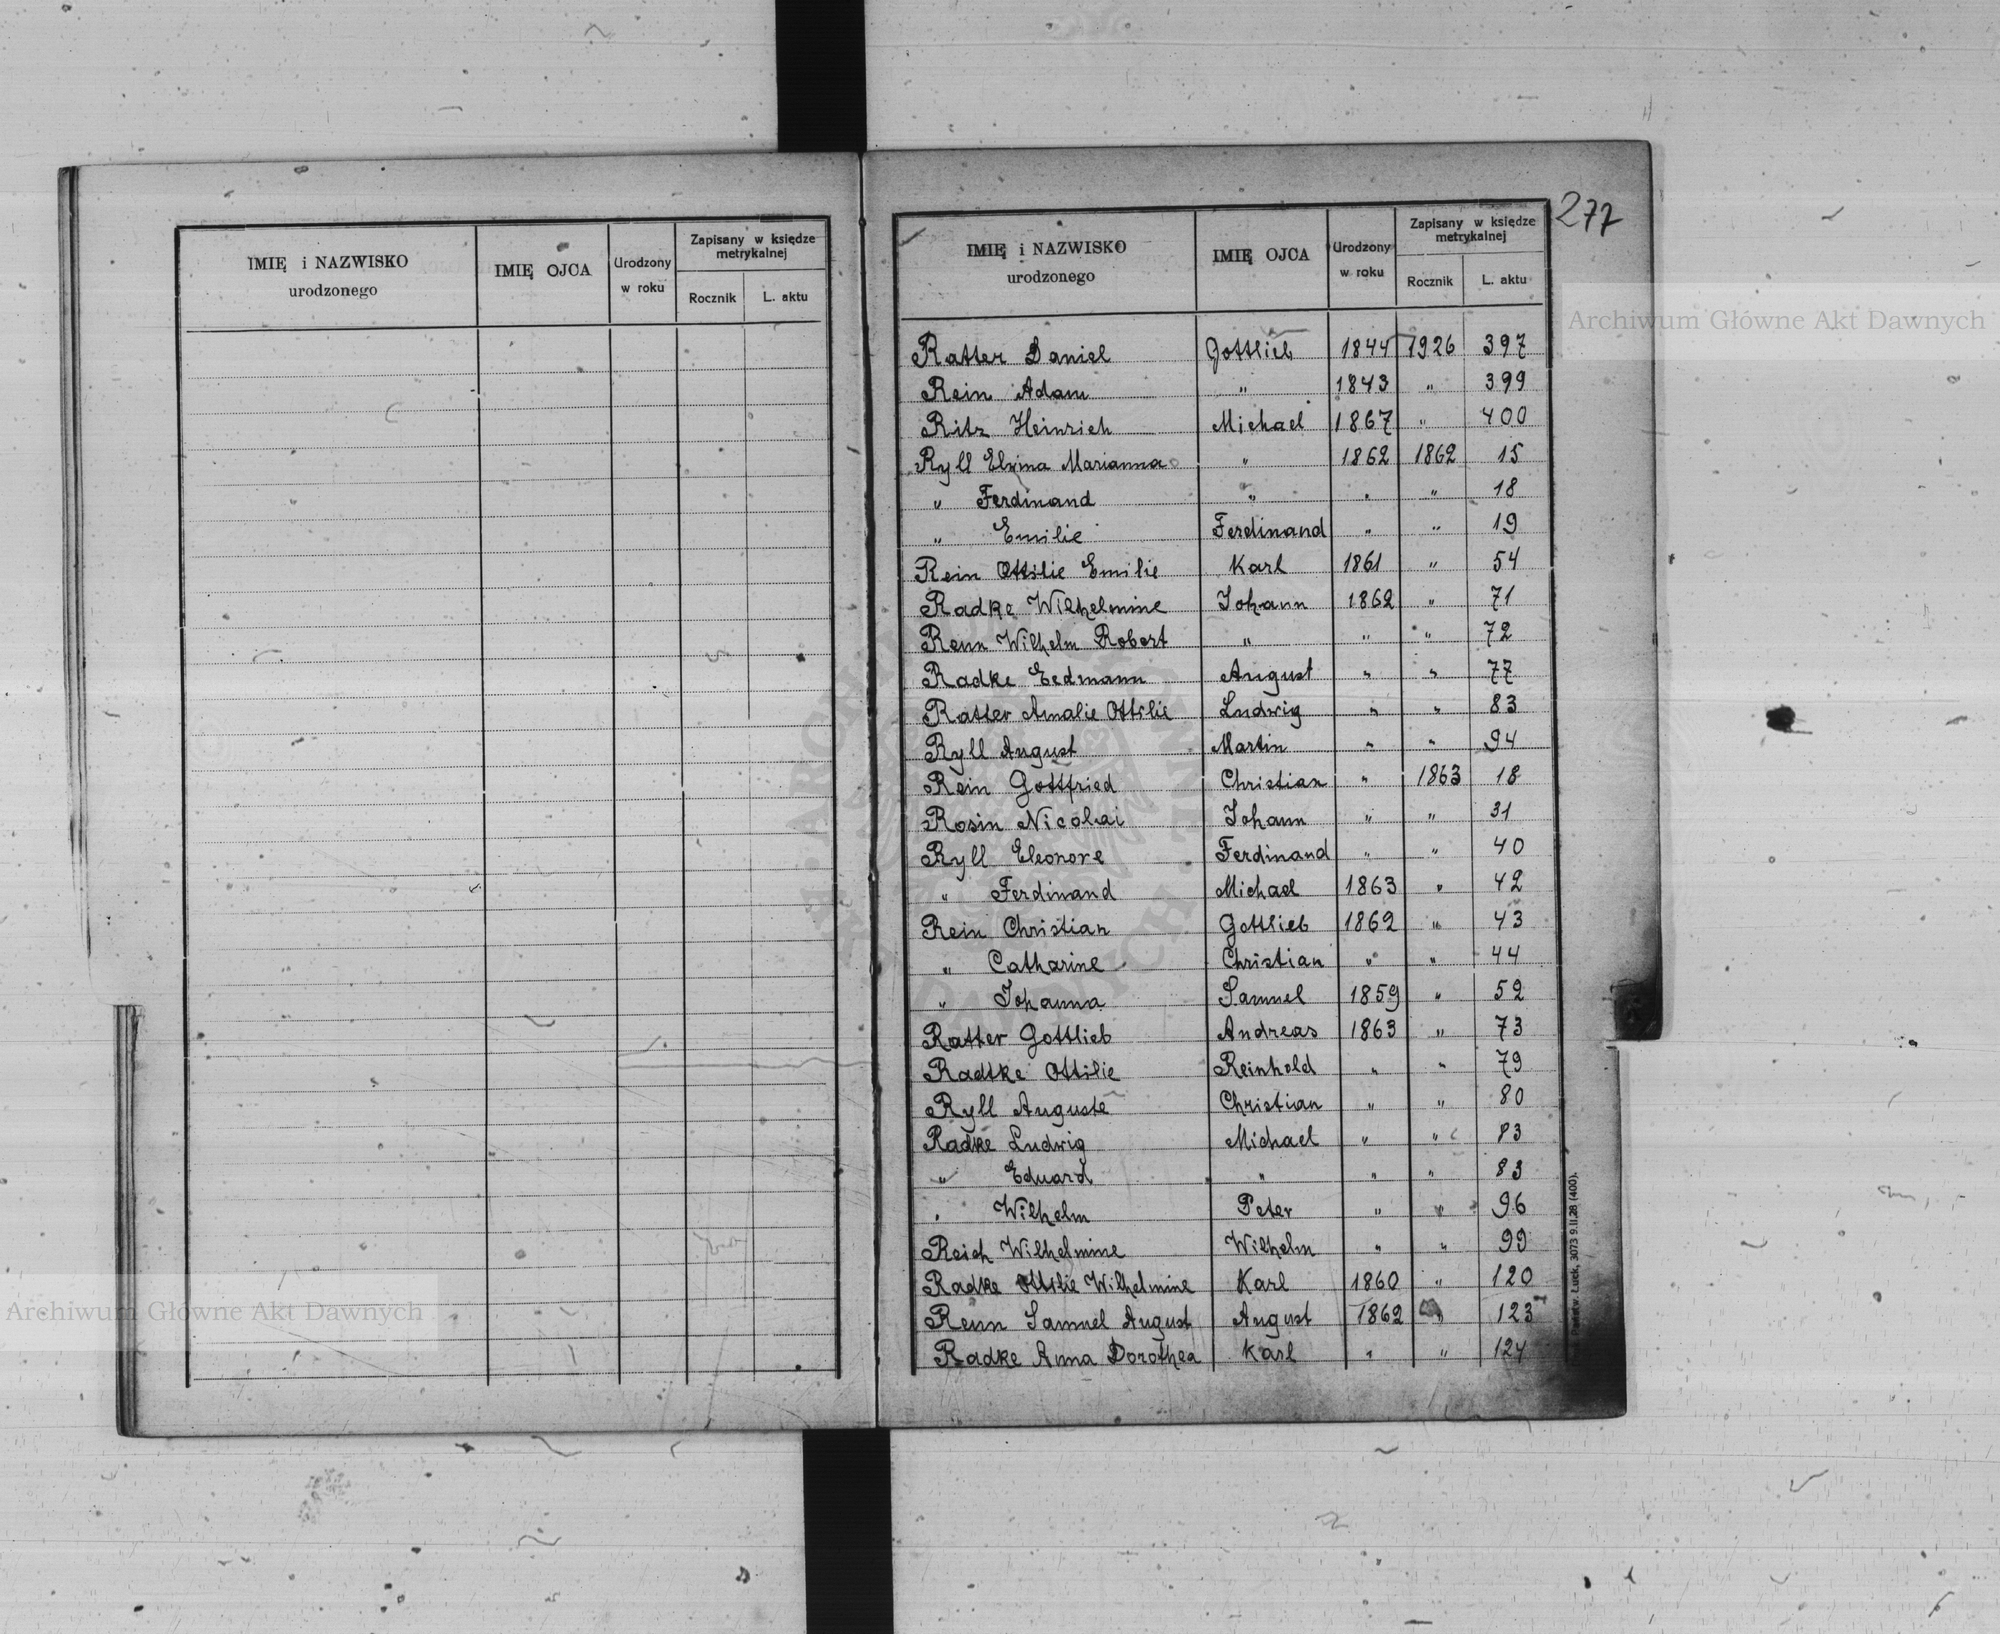 IMIĘ i NAZWISKO urodzonego | IMIĘ OJCA | Urodzony w roku | Zapisany w księdze metrykalnej | Rocznik | L. aktu
277
IMIĘ i NAZWISKO urodzonego | IMIĘ OJCA | Urodzony w roku | Zapisany w księdze metrykalnej | Rocznik | L. aktu
Ratter Daniel Gottlieb 1844 1926 397
Rein Adam " 1843 " 399
Ritz Heinrich Michael 1867 " 400
Ryll Elvina Marianna " 1862 1862 15
" Ferdinand " " " 18
" Emilie Ferdinand " " 19
Rein Ottilie Emilie Karl 1861 " 54
Radke Wilhelmine Johann 1862 " 71
Renn Wilhelm Robert " " " 72
Radke Erdmann August " " 77
Ratter Amalie Ottilie Ludwig " " 83
Ryll August Martin " " 94
Rein Gottfried Christian " 1863 18
Rosin Nicolai Johann " " 31
Ryll Eleonore Ferdinand " " 40
" Ferdinand Michael 1863 " 42
Rein Christian Gottlieb 1862 " 43
" Catharine Christian " " 44
" Johanna Samuel 1859 " 52
Ratter Gottlieb Andreas 1863 " 73
Radtke Ottilie Reinhold " " 79
Ryll Auguste Christian " " 80
Radke Ludwig Michael " " 83
" Eduard " " " 83
" Wilhelm Peter " " 96
Reich Wilhelmine Wilhelm " " 99
Radke Ottilie Wilhelmine Karl 1860 " 120
Renn Samuel August August 1862 " 123
Radke Anna Dorothea Karl " " 124
Łuck, 3073 9.II.28 (400).
Archiwum Główne Akt Dawnych
Archiwum Główne Akt Dawnych